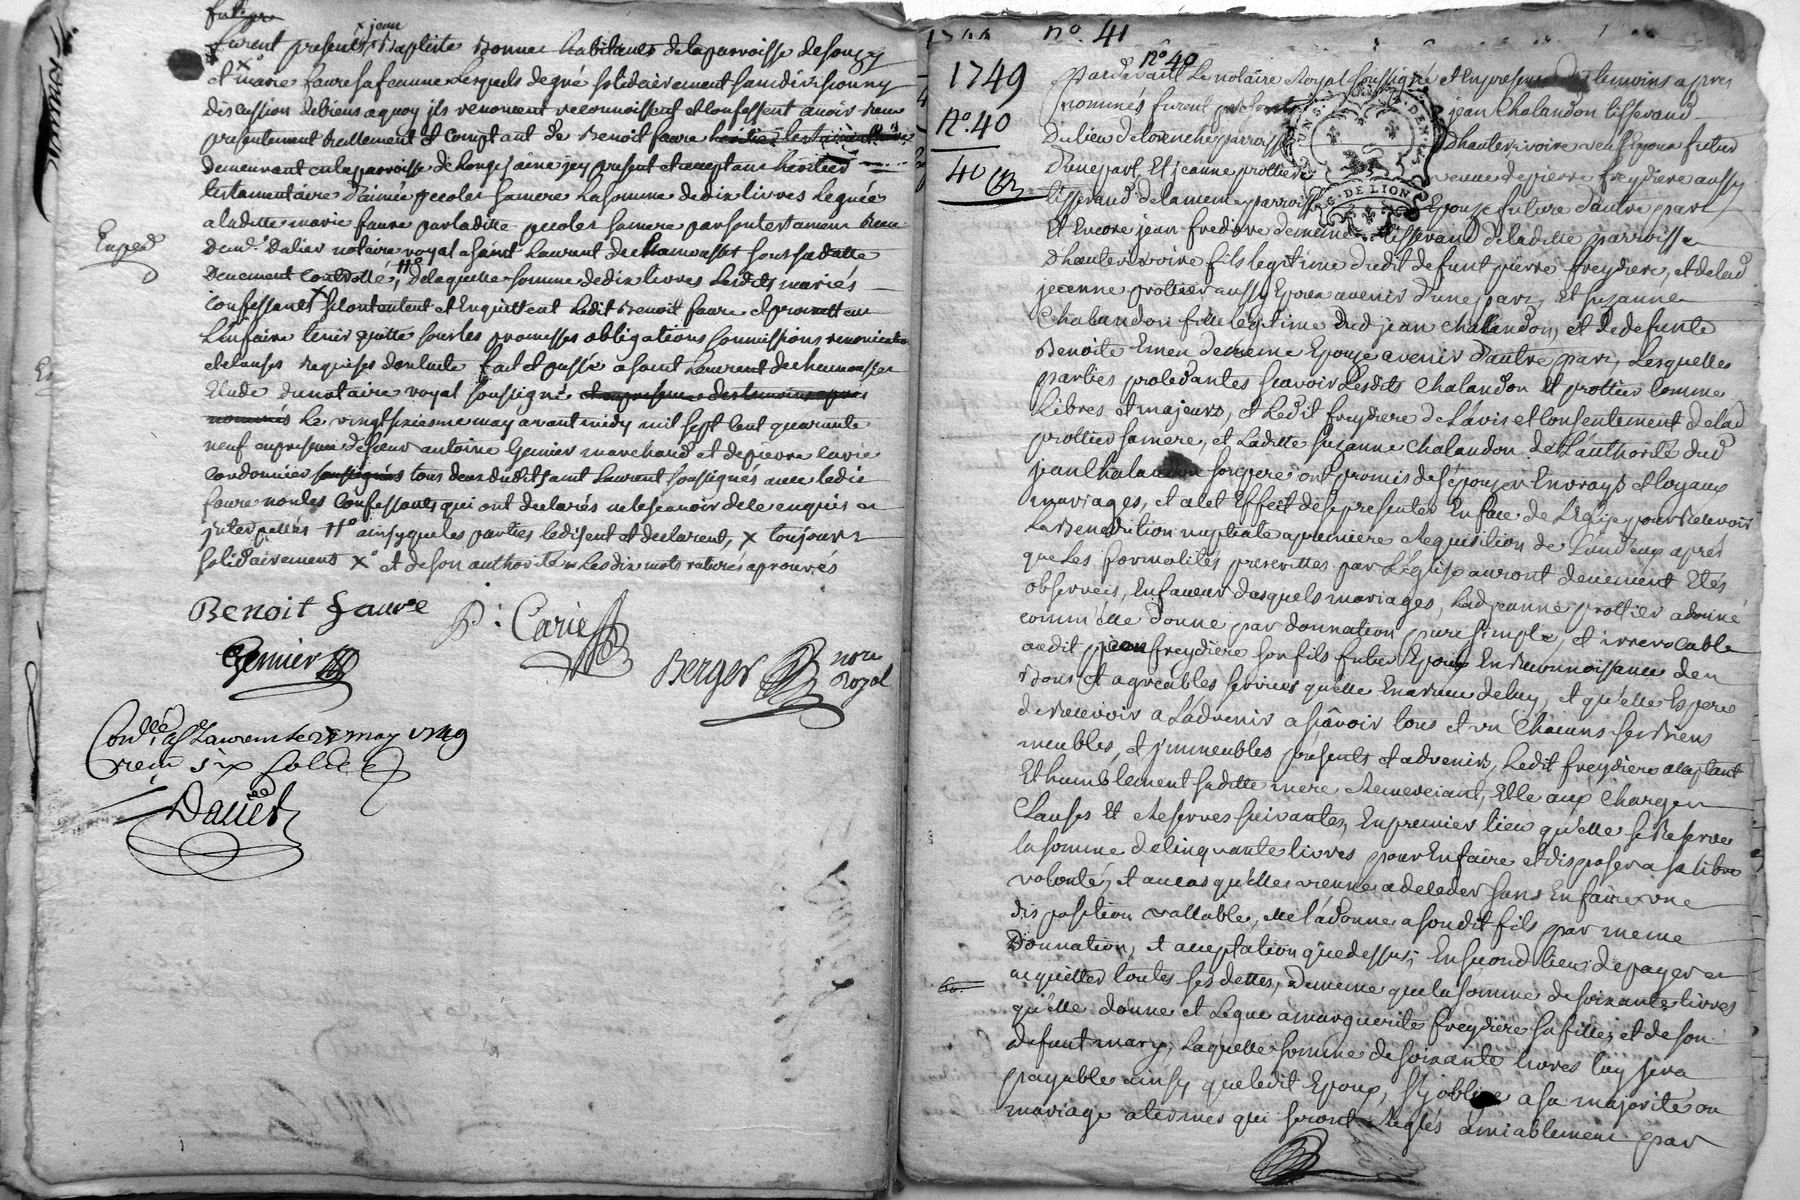 furent presents x jean Baptiste Bonne habitants de la parroisse de souzy
et x° marie faure sa femme Lesquels de gré solidairement sans division ny
discussion de biens a quoy ils renoncent reconnoissent et confessent avoir Receu
presentement reellement et comptant de Benoit faure
demeurant en la parroisse de Longessaine jcy present et acceptant heritier
testamentaire d'aimée sa mere La somme de dix livres Leguée
a laditte marie faure par laditte sa mere par son testament Receu
de me. Dalier notaire royal a saint Laurent de chamousset sous sa datte
Deuement controllé, #° de laquelle somme de dix livres Lesdits mariés
confessants se contentent et Enquittent Ledit Benoit faure et promettent
L'enfaire tenir quitte sous les promesses obligations soumissions renonciations
et clauses requises dont acte fait et passé a saint Laurent de chamousset
Etude du notaire royal soussigné et en presence des temoins apres
nommés Le vingt sixiesme may avant midy mil sept cent quarante
neuf en presence de sieur antoine Gemier marchand et de pierre Carie
Cordonnier soussignés tous deux dudit saint Laurent soussignés avec ledit
faure non les Confessants qui ont declarés ne le scavoir de ce enquis et
jnterpellés #° ainsy que les parties le disent et declarent, x toujours
solidairement x° et de son authorité Les dix mots raturés aprouvés
Exped
Benoit faure
P: Carie
Gemier
Berger nore Royal
Con.llé a St Laurent le 27 may 1749
receu six sols
Daliet
n°. 41
n° 40
1749
N°. 40
40
Pardevant Le notaire Royal soussigné et En presence des temoins apres
nommés furent presents jean Chalandon tisserand
Du lieu de parroisse D'hauterivoire veuf Epoux futur
D'une part, Et jeanne prottier veuve de pierre freydiere aussy
tisserand de la meme parroisse Epouze future d'autre part
Et Encore jean freydiere de meme tisserand de laditte parroisse
D'hauterivoire fils legitime dudit defunt pierre freydiere, et de lad
jeanne prottier aussy Epoux avenir d'une part, Et suzanne
Chalandon fille legitime dud jean chalandon, et de defunte
Benoite de meme Epouze avenir d'autre part, Lesquelles
parties procedantes scavoir Lesdits Chalandon Et prottier comme
Libres et majeurs, et Ledit freydiere de L'avis et consentement de lad
prottier sa mere, et Laditte suzanne chalandon de L'authorité dud
jean Chalandon son pere ont promis de s'épouzer En vrays et loyaux
mariages, et a cet Effect de se presenter En face de L'église pour Recevoir
La Benediction nuptiale a premiere Requisition de L'un d'eux apres
que Les formalités prescrittes par L'église auront deuement Etés
observeés, En faveur desquels mariages, Lad jeanne prottier a donné
comm'elle donne par donnation pure simple, et irrevocable
audit jean freydiere son fils futur Epoux En Reconnoissance des
Bons et agreables services qu'elle En a receu de luy, et qu'elle Espere
de Recevoir a L'advenir a scâvoir tous et un Chacuns ses Biens
meubles, et jmmeubles presents et advenirs, Ledit freydiere acceptant
Et humblement saditte mere Remerciant, Et ce aux charges
Clauses et Reserves suivantes, En premier lieu qu'elle se Reserve
la somme de Cinquante livres pour En faire et disposer a sa libre
volonté, et au cas qu'elle vienne a deceder sans En faire une
disposition vallable, elle l'a donne a son dit fils par meme
Donnation, et acceptation que dessus, En second lieu de payer et
acquitter toutes ses dettes, de meme que la somme de soixante livres
60.
qu'elle donne et legue a marguerite freydiere sa fille, et de son
defunt mary, Laquelle somme de soixante livres luy sera
payable ainsy que ledit Epoux, s'y oblige a sa majorité ou
mariage a termes qui seront Reglés amiablement par